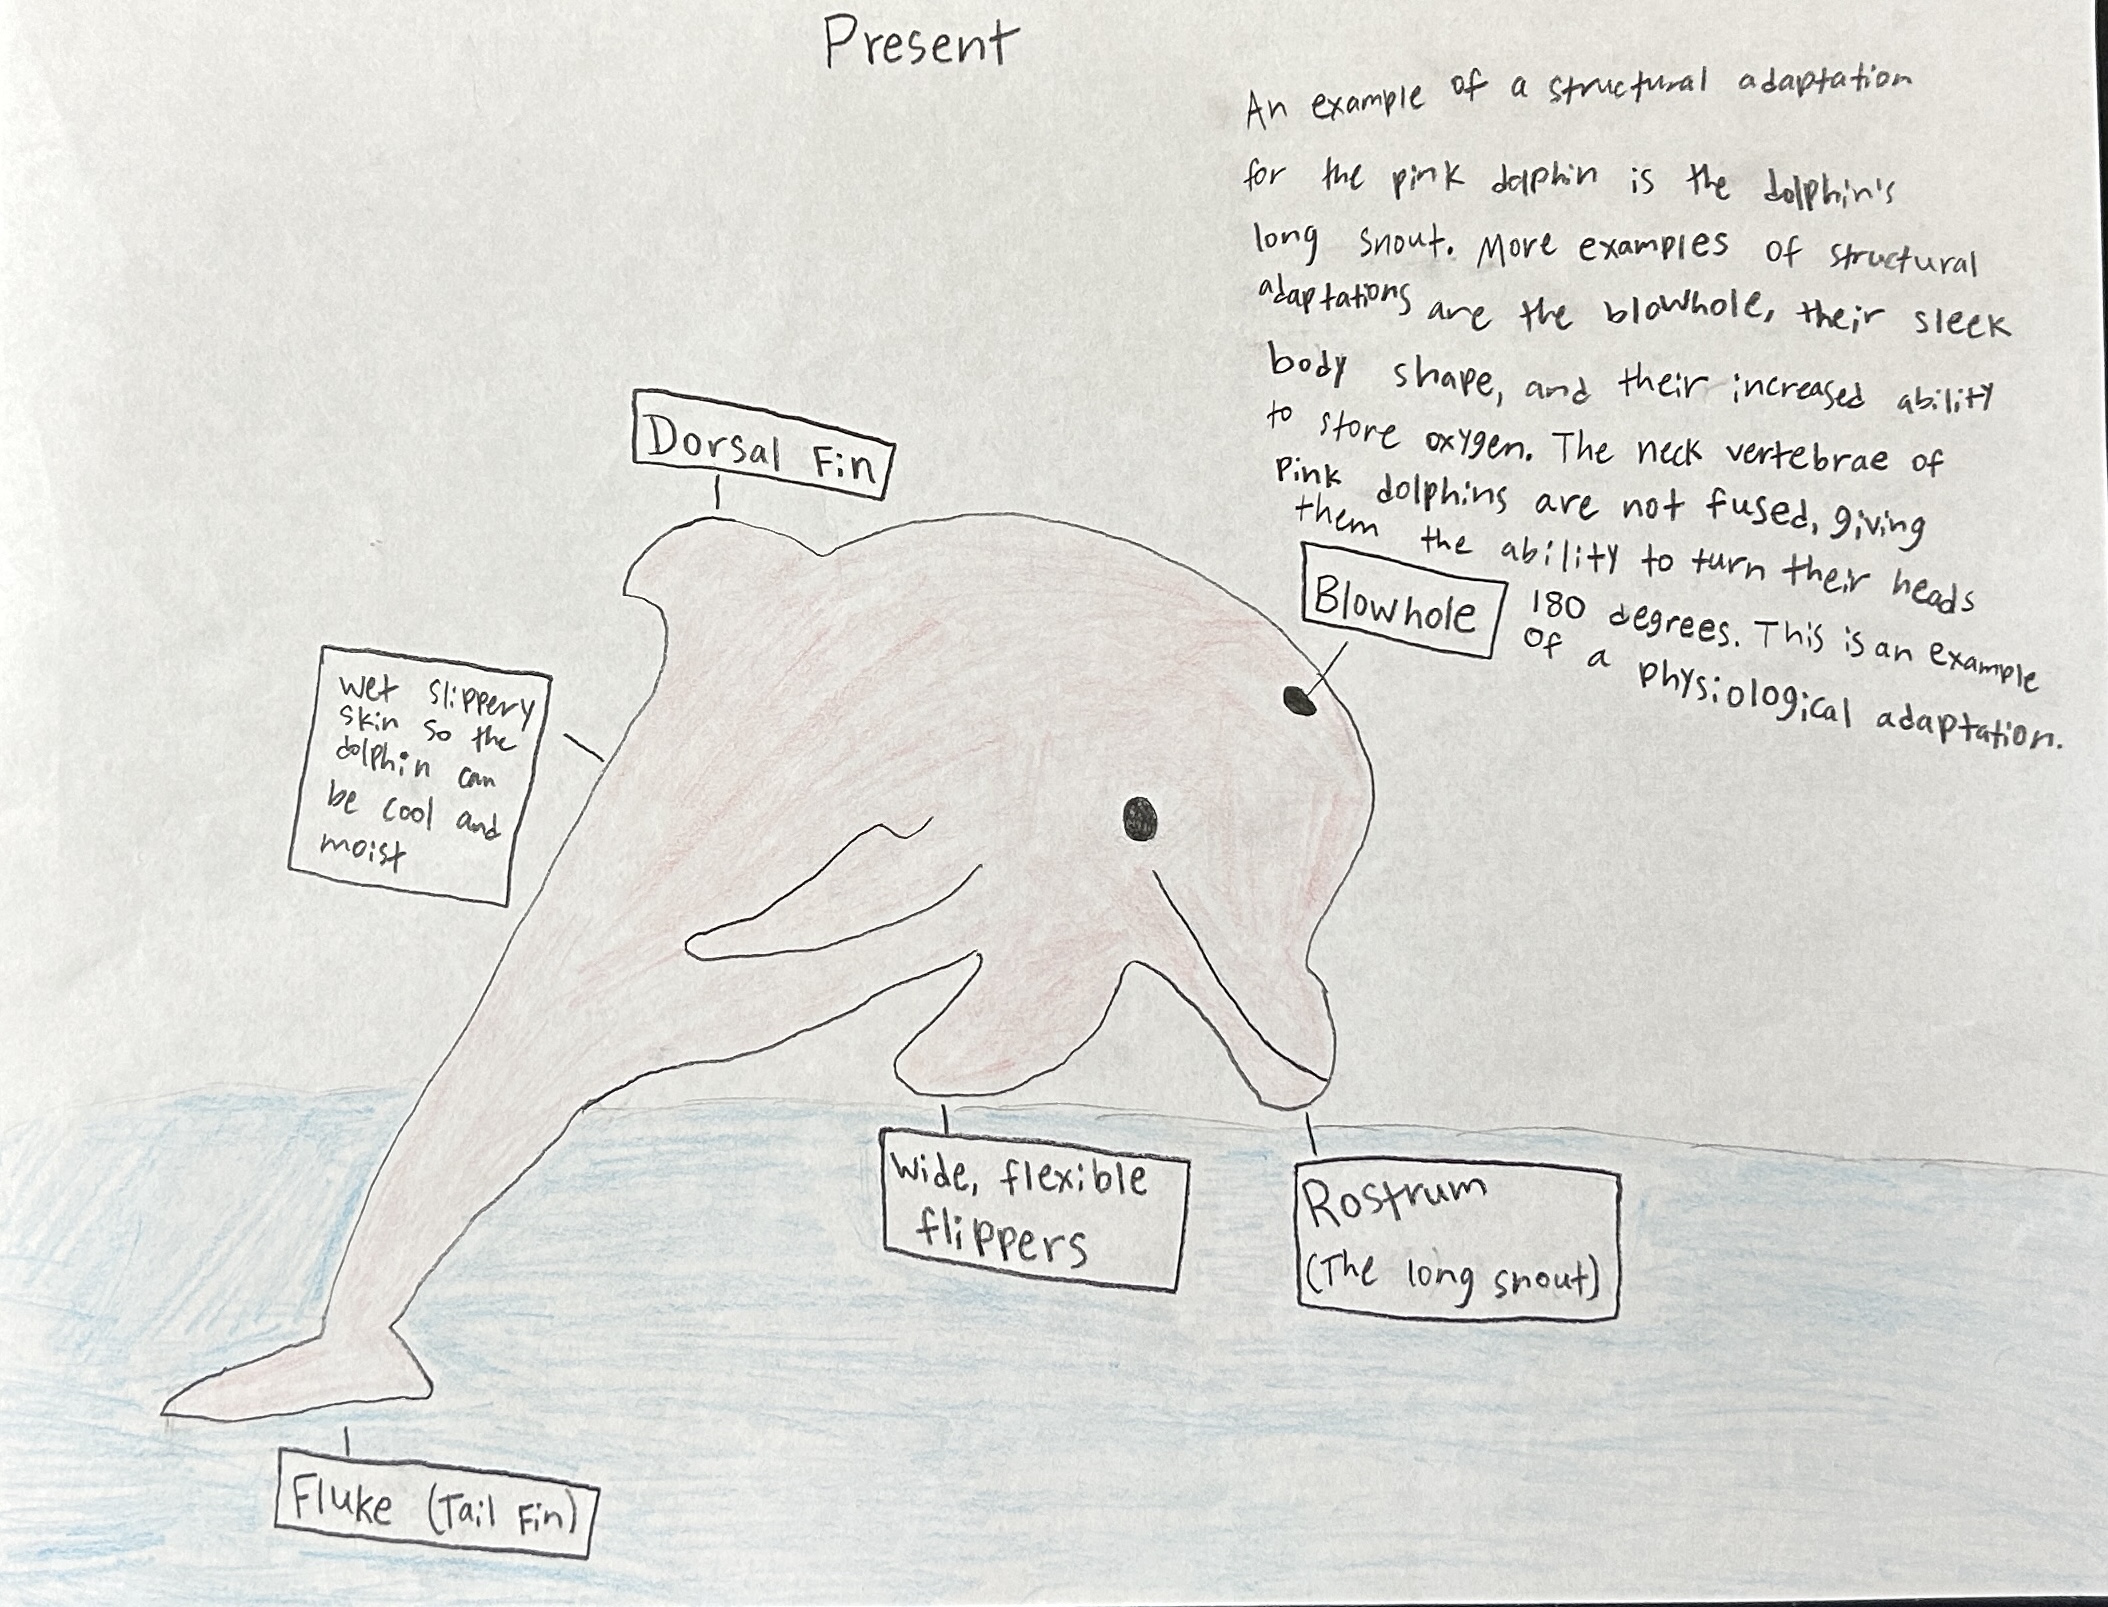 Present
An example of a structural adaptation
for the pink dolphin is the dolphin's
long snout. More examples of structural
adaptations are the blowhole, their sleek
body shape, and their increased ability
to store oxygen. The neck vertebrae of
Pink dolphins are not fused, giving
them the ability to turn their heads
180 degrees. This is an example
of a physiological adaptation.
Dorsal Fin
Blowhole
wet slippery
skin so the
dolphin can
be cool and
moist
Wide, flexible
flippers
Rostrum
(The long snout)
Fluke (Tail Fin)